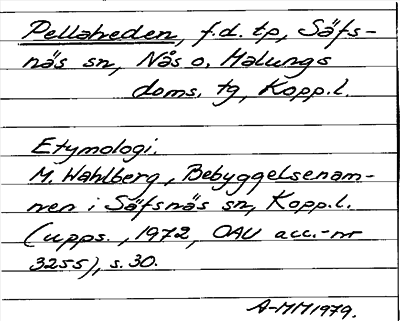 Pellaheden, f.d. tp, Säfs-
näs sn, Nås o. Malungs
doms. tg, Kopp.l.
Etymologi.
M. Wahlberg, Bebyggelsenam-
nen i Säfsnäs sn, Kopp.l.
(upps., 1972, OAU acc.-nr
3255), s. 30.
A-MM1979.